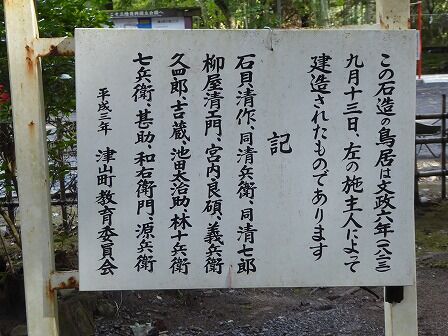 この石造の鳥居は文政六年(一八二三)
九月十三日、左の施主人によって
建造されたものであります
記
石貝清作、同清兵衛、同清七郎
柳屋清エ門、宮内良碩、義兵衛
久四郎、吉蔵、池田大治助、林十兵衛
七兵衛、甚助、和右衛門、源兵衛
平成三年 津山町教育委員会